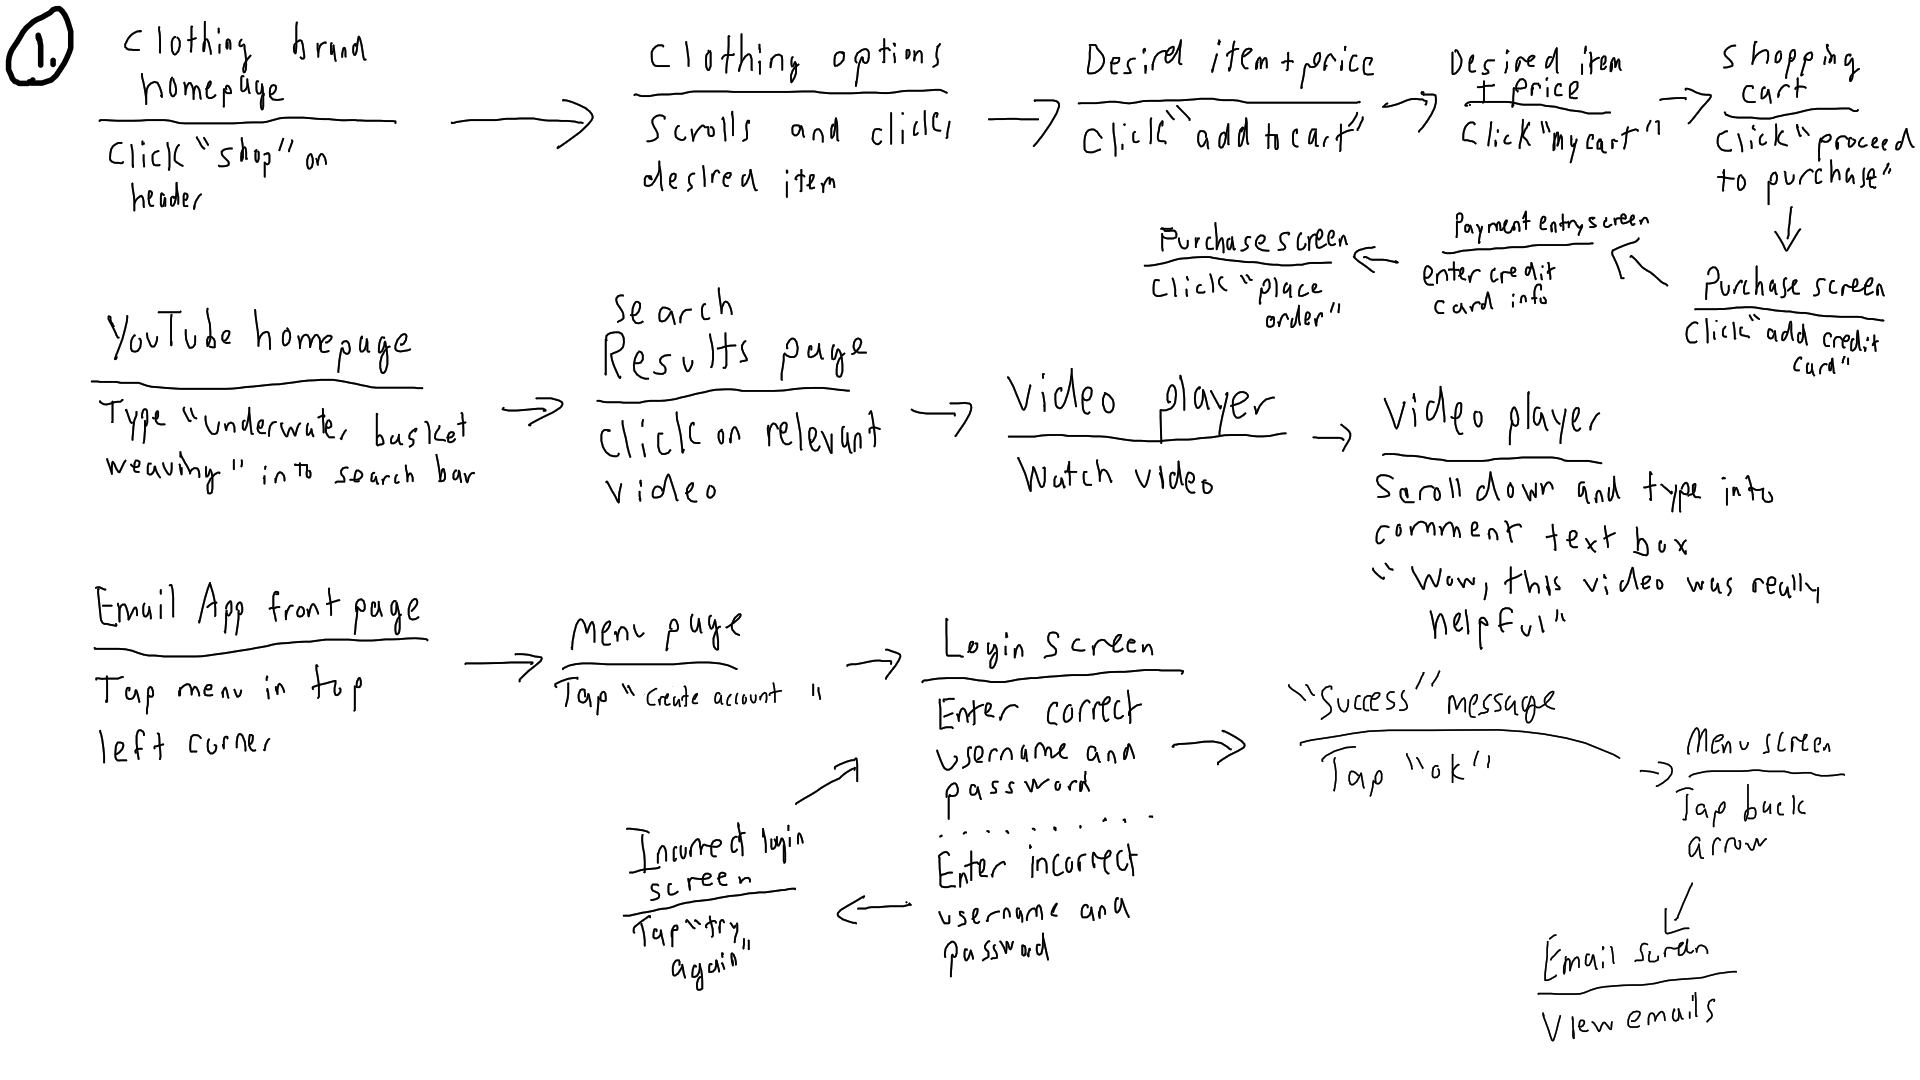 1.
Clothing brand
homepage
Click "shop" on
header
Clothing options
Scrolls and clicks
desired item
Desired item + price
Click "add to cart"
Desired item
+ price
Click "my cart"
Shopping
cart
Click "proceed
to purchase"
Purchase screen
Click "add credit
card"
Payment entry screen
enter credit
card info
Purchase screen
Click "place
order"
YouTube homepage
Type "underwater basket
weaving" into search bar
Search
Results page
Click on relevant
video
Video player
Watch video
Video player
Scroll down and type into
comment text box
"Wow, this video was really
helpful"
Email App front page
Tap menu in top
left corner
Menu page
Tap "Create account"
Login screen
Enter correct
username and
password
Enter incorrect
username and
password
Incorrect login
screen
Tap "try
again"
"Success" message
Tap "ok"
Menu screen
Tap back
arrow
Email screen
View emails